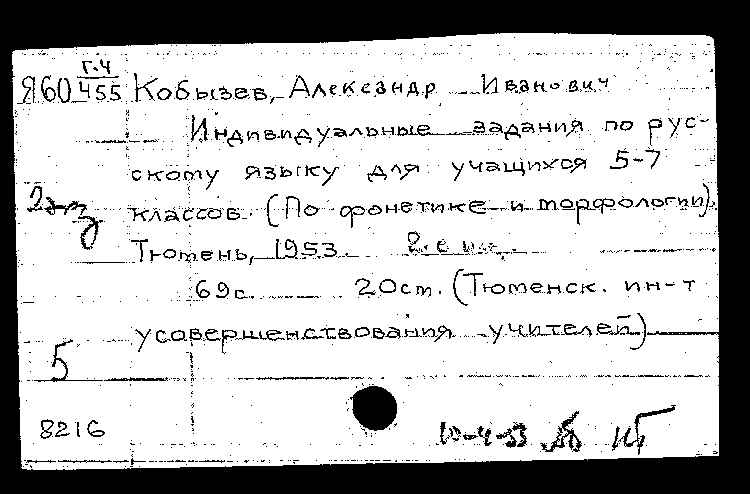 Г.4
Я60 455 Кобызев, Александр Иванович
Индивидуальные задания по рус-
скому языку для учащихся 5-7
2 экз
классов. (По фонетике и морфологии).
Тюмень, 1953.
69с. 20 см. (Тюменск. ин-т
усовершенствования учителей)
5
8216
10-4-53